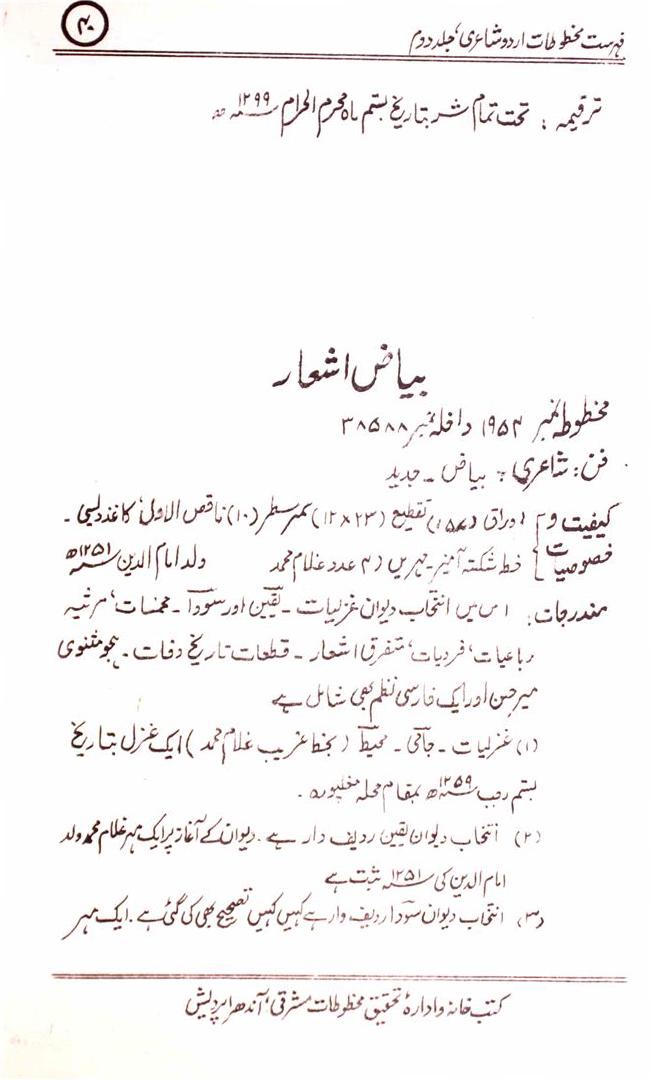 ۴۰
فہرست مخطوطات اردو شاعری، جلد دوم
ترقیمہ : تحت تمام شد بتاریخ بستم ماہ محرم الحرام ۱۲۹۹ھ
بیاض اشعار
مخطوطہ نمبر ۱۹۵۴ داخلہ نمبر ۳۸۵۸۸
فن : شاعری : بیاض ۔ جدید
کیفیت و اوراق (۱۵۸) تقطیع (۲۳×۱۲) سطر (۱۰) ناقص الاول، کاغذ دلیسی ۔
خصوصیات خط شکستہ آمیز ۔ مہریں (۴ عدد غلام محمد ولد امام الدین ۱۲۵۱ھ
مندرجات : اس میں انتخاب دیوان غزلیات ۔ یقین اور سودا ۔ مخمسات، مرثیہ
رباعیات، فردیات، متفرق اشعار ۔ قطعات تاریخ وفات ۔ ہجو مثنوی
میر حسن اور ایک فارسی نظم بھی شامل ہے
(۱) غزلیات ۔ جامی ۔ محیط (بخط غریب غلام محمد) ایک غزل بتاریخ
بستم رجب ۱۲۵۹ھ بمقام محلہ مغلپورہ .
(۲) انتخاب دیوان یقین ردیف دار ہے . دیوان کے آغاز پر ایک مہر غلام محمد ولد
امام الدین کی ۱۲۵۱ ثبت ہے
(۳) انتخاب دیوان سودا ردیف وار ہے کہیں کہیں تصحیح بھی کی گئی ہے . ایک مہر
کتب خانہ و ادارۂ تحقیق مخطوطات مشرقی، آندھرا پردیش